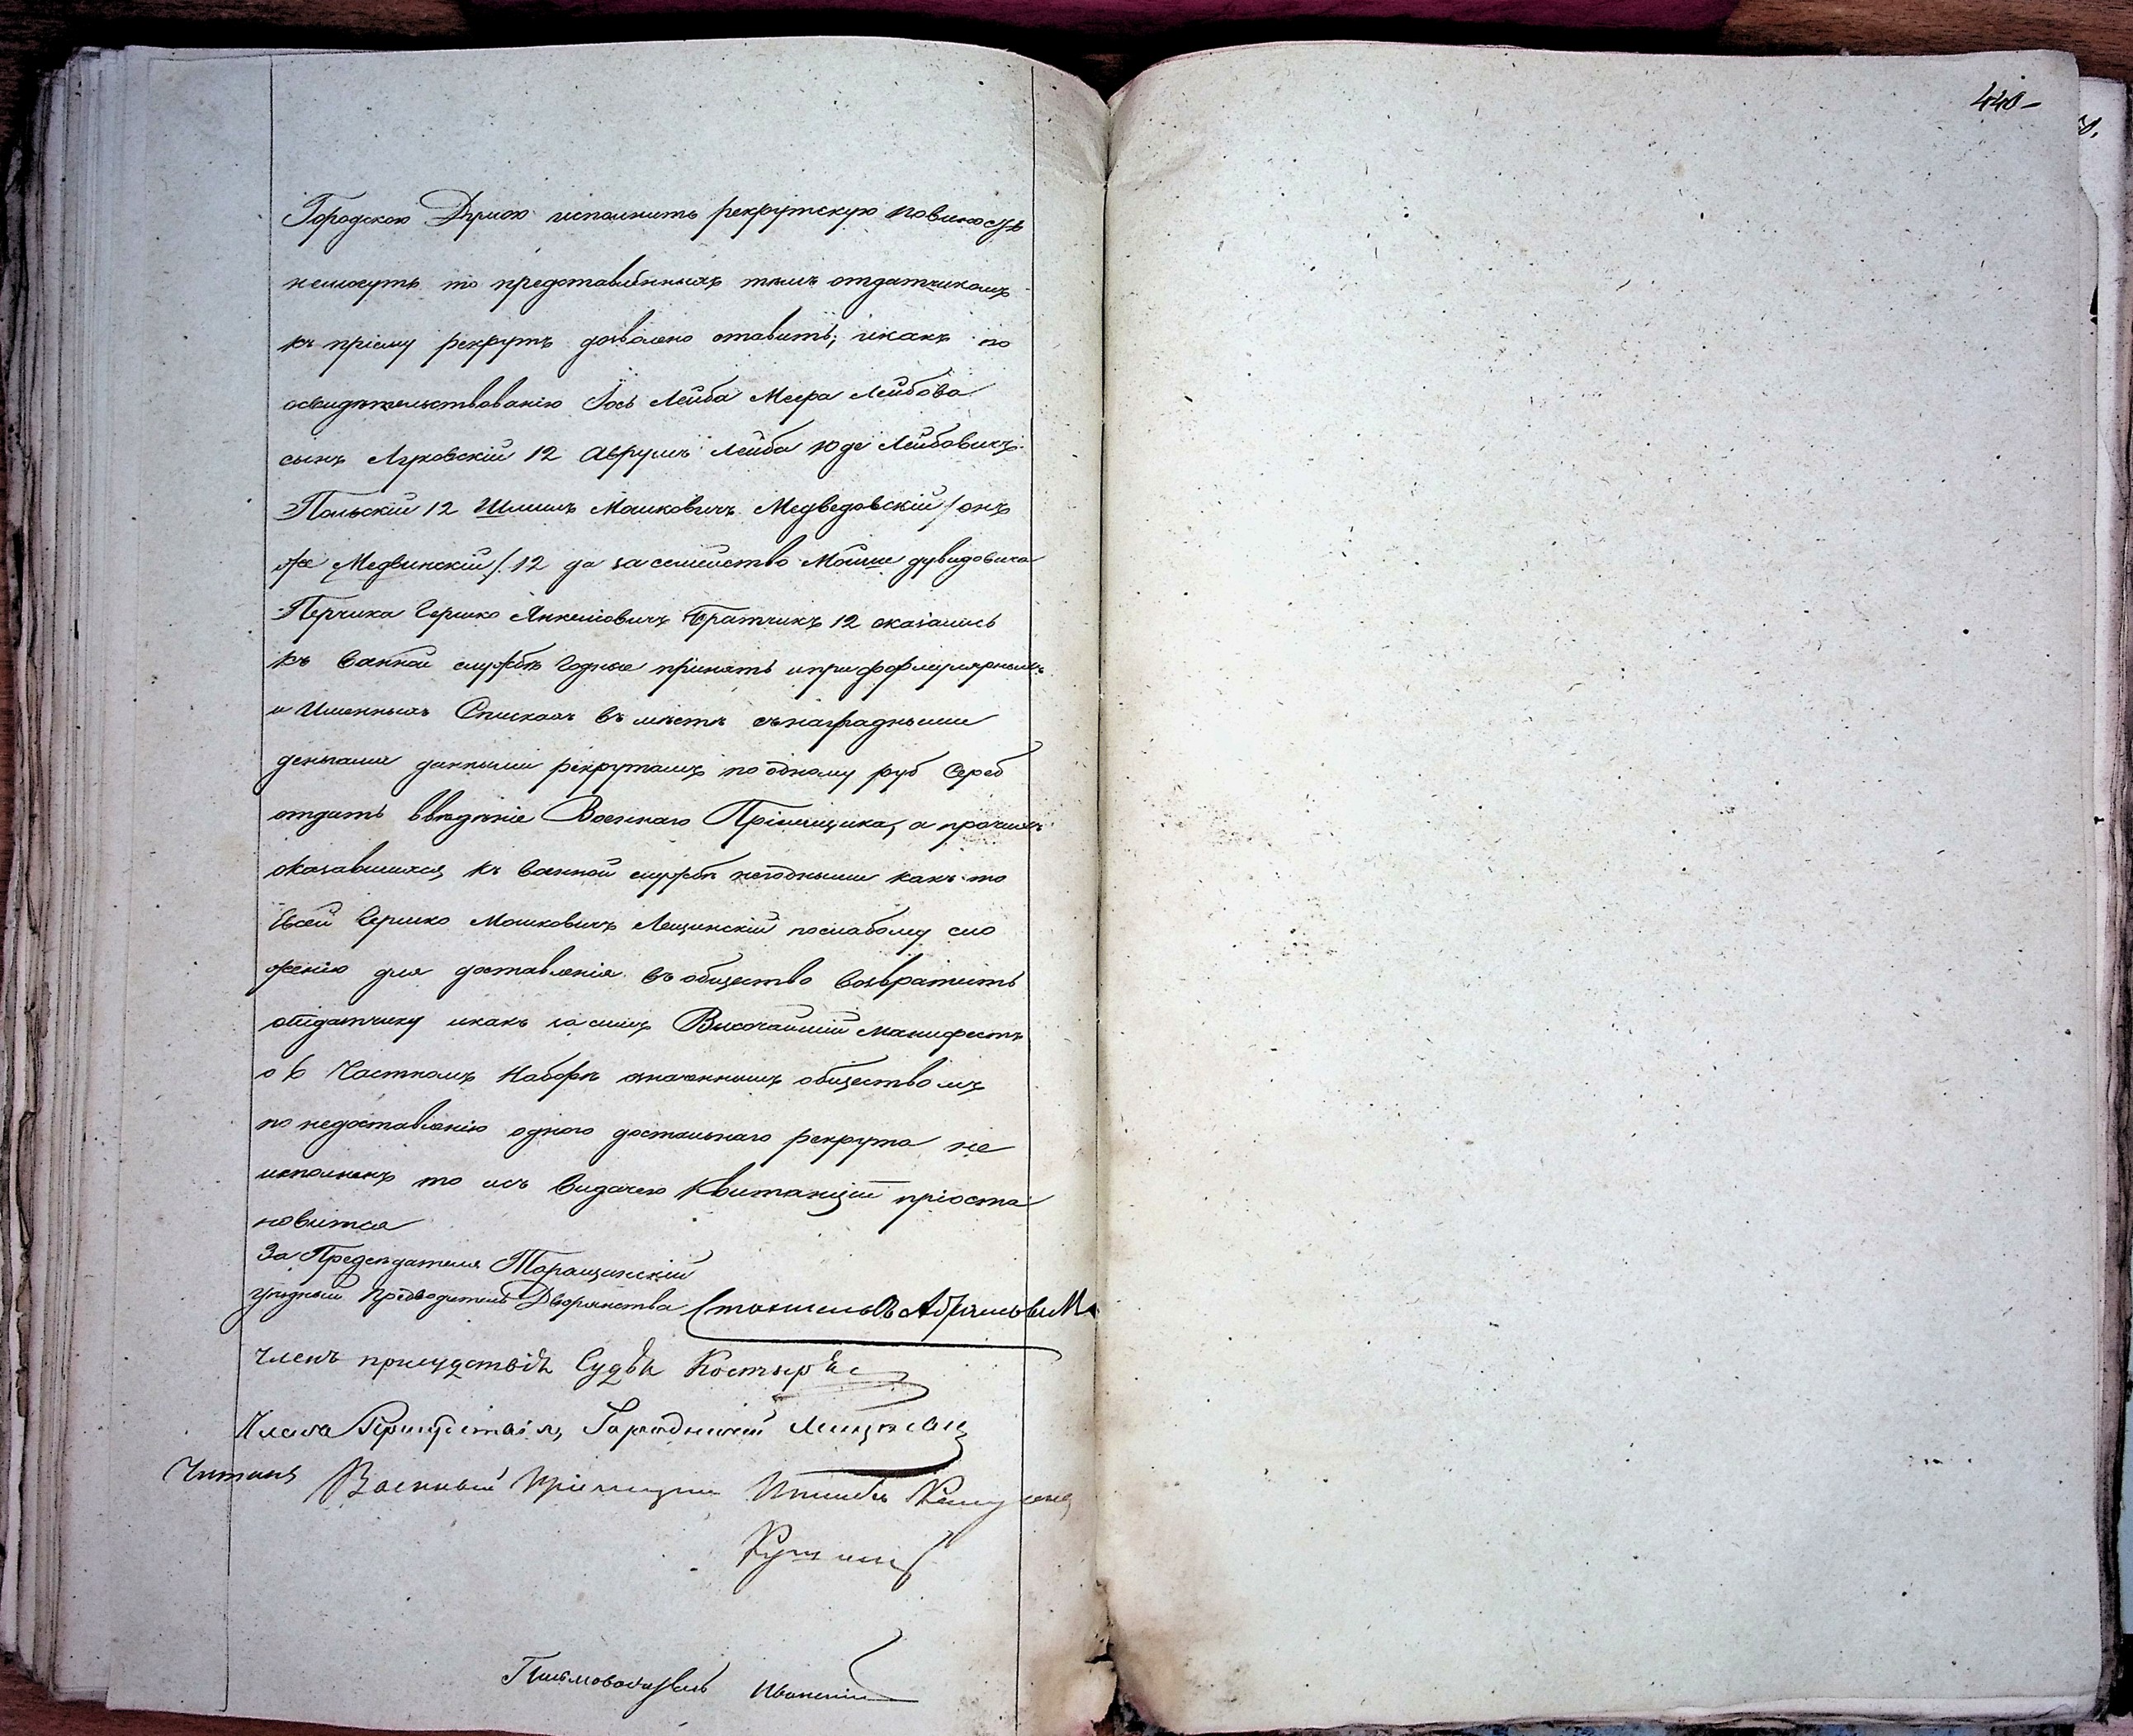 440-
Городскою Думою исполнить рекрутскую повиность
немогутъ то представленныхъ тымъ отдатчикомъ
къ пріему рекрутъ дозволено ставить; икакъ по
освидѣтельствованію Іось Лейба Меера Лейбова
сынъ Луковскій 12 Аврумъ Лейба Юде Лейбовичъ
Польскій 12 Шлима Мошковичъ Медведовскій /онъ
же Медвинскій/ 12 да за семейство Мошше дувидовича
Перчика Гершко Янкелiовичъ Братчикъ 12 оказались
къ военной службѣ годные принять ипри формулярныхъ
и Именныхъ Спискахъ въ мѣстѣ съ наградными
деньгами данными рекрутамъ по одному руб Сереб
отдать ввѣдѣніе Военнаго Пріемщика, а прочихъ
оказавшихся къ военной службѣ негодными какъ-то
Евсей Гершко Мошковичъ Лещинскій послабому сло
женію для доставленія въ общество возвратить
отдатчику икакъ за симъ Высочайшій Манифестъ
о 6 Частномъ Наборѣ означеннымъ обществомъ
по недоставленію одного достальнаго рекрута не
исполненъ то исъ видачею Квитанціи пріоста
новится
За Председателя Таращанскій
Уѣздный Предводитель Дворянства
Членъ присудствія Судья
Члена Присудствія, Городничій
Читалъ Военный Пріемщикъ
Письмоводитель Иванскій